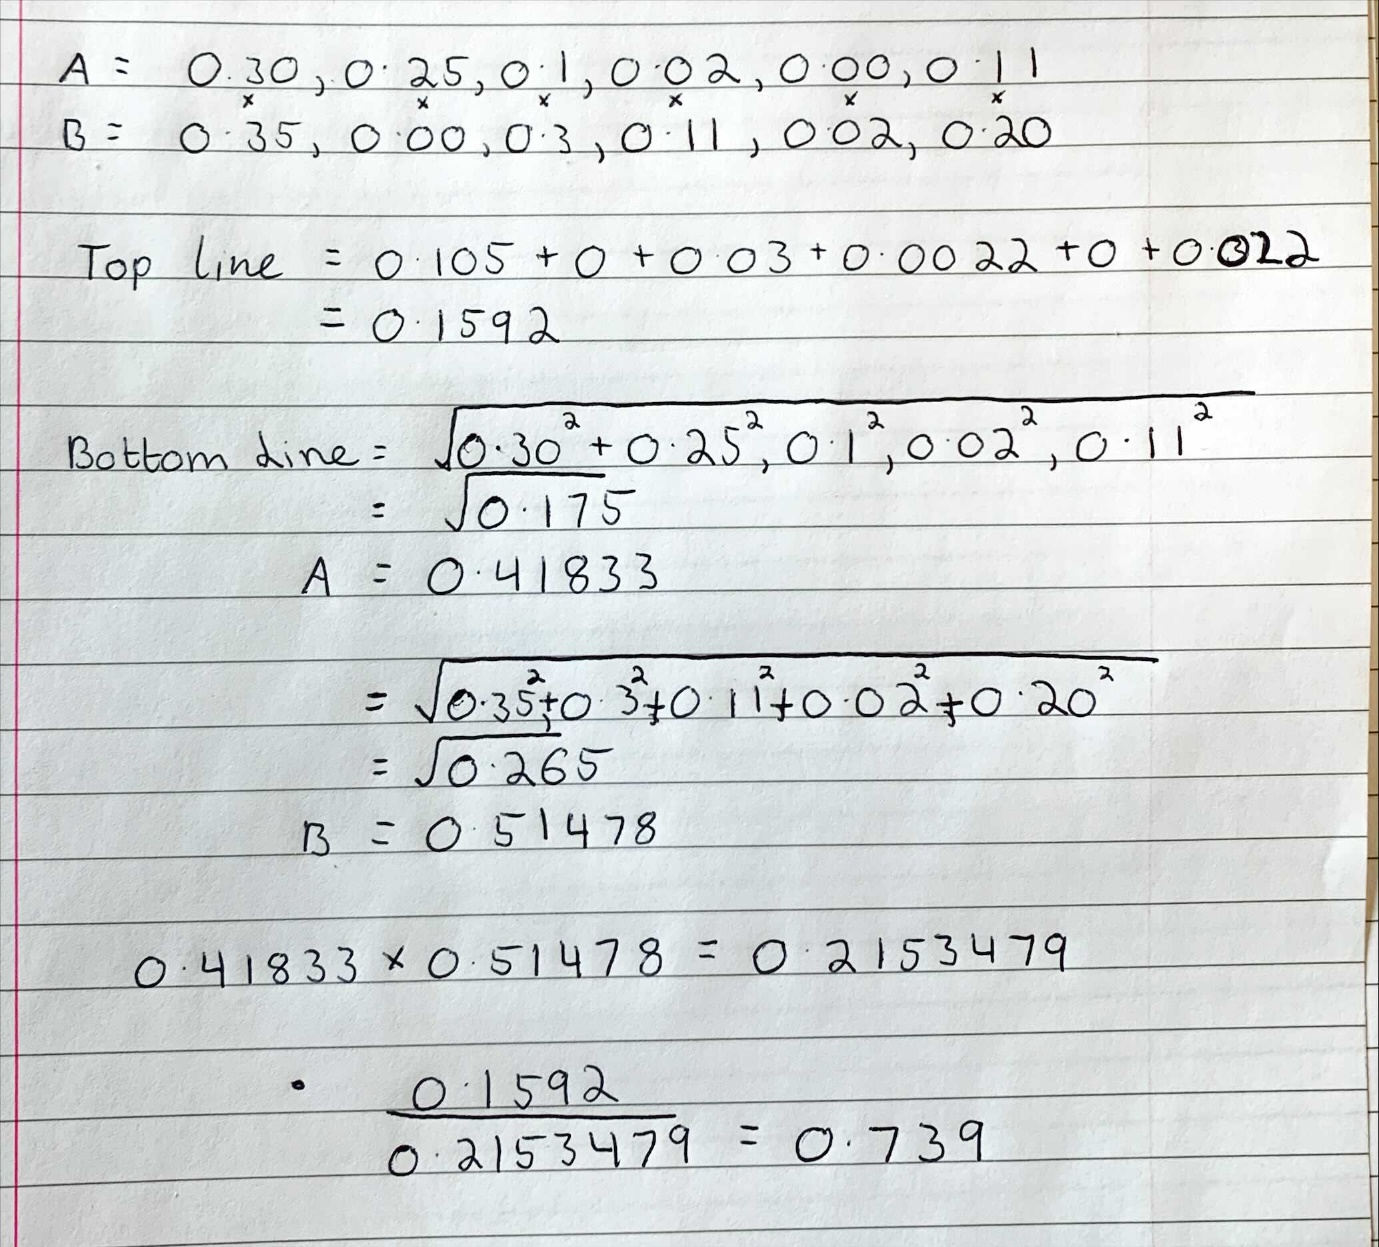 A = 0.30, 0.25, 0.1, 0.02, 0.00, 0.11
x x x x x x
B = 0.35, 0.00, 0.3, 0.11, 0.02, 0.20
Top line = 0.105 + 0 + 0.03 + 0.0022 + 0 + 0.022
= 0.1592
Bottom Line = √0.30² + 0.25², 0.1², 0.02², 0.11²
= √0.175
A = 0.41833
= √0.35² + 0.3² + 0.11² + 0.02² + 0.20²
= √0.265
B = 0.51478
0.41833 x 0.51478 = 0.2153479
• 0.1592
0.2153479 = 0.739